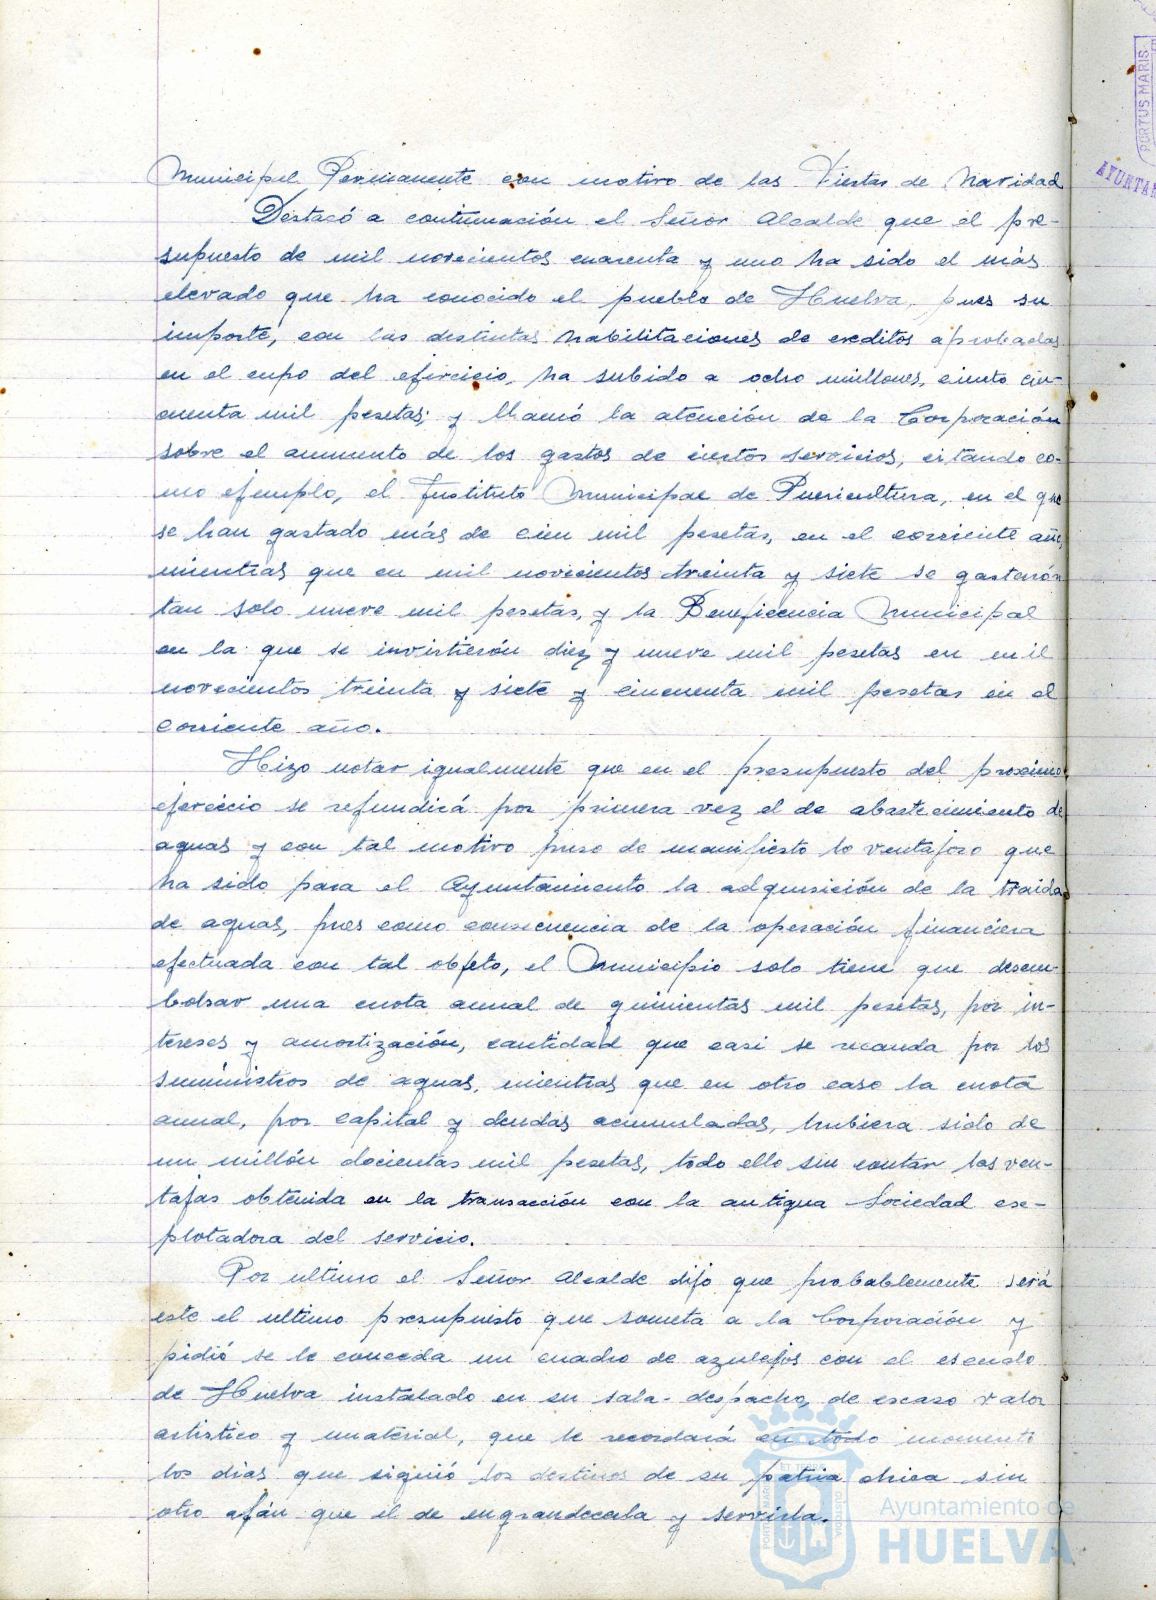 Municipal Permanente con motivo de las Fiestas de Navidad
Destacó a continuación el Señor Alcalde que el pre-
supuesto de mil novecientos cuarenta y uno ha sido el más
elevado que ha conocido el pueblo de Huelva, pues su
importe, con las distintas habilitaciones de creditos aprobadas
en el cupo del ejercicio, ha subido a ocho millones, ciento cin-
cuenta mil pesetas; y llamó la atención de la Corporación
sobre el aumento de los gastos de ciertos servicios, citando co-
mo ejemplo, el Instituto Municipal de Puericultura, en el que
se han gastado más de cien mil pesetas, en el corriente año,
mientras que en mil novecientos treinta y siete se gastarón
tan solo nueve mil pesetas, y la Beneficencia Municipal
en la que se invirtierón diez y nueve mil pesetas en mil
novecientos treinta y siete y cincuenta mil pesetas en el
corriente año.
Hizo notar igualmente que en el presupuesto del proximo
ejercicio se refundirá por primera vez el de abastecimiento de
aguas y con tal motivo puso de manifiesto lo ventajoso que
ha sido para el Ayuntamiento la adquisición de la traida
de aguas, pues como consecuencia de la operación financiera
efectuada con tal objeto, el Municipio solo tiene que desem-
bolsar una cuota anual de quinientas mil pesetas, por in-
tereses y amortización, cantidad que casi se recauda por los
suministros de aguas, mientras que en otro caso la cuota
anual, por capital y deudas acumuladas, hubiera sido de
un millón docientas mil pesetas, todo ello sin contar las ven-
tajas obtenida en la transacción con la antigua Sociedad ex-
plotadora del servicio.
Por ultimo el Señor Alcalde dijo que probablemente será
este el ultimo presupuesto que someta a la Corporación y
pidió se le conceda un cuadro de azulejos con el escudo
de Huelva instalado en su sala-despacho, de escaso valor
artistico y material, que le recordará en todo momento
los dias que siguió los destinos de su patria chica sin
otro afán que el de engrandecerla y servirla.
PORTUS MARIS
AYUNTAM
Ayuntamiento de
HUELVA